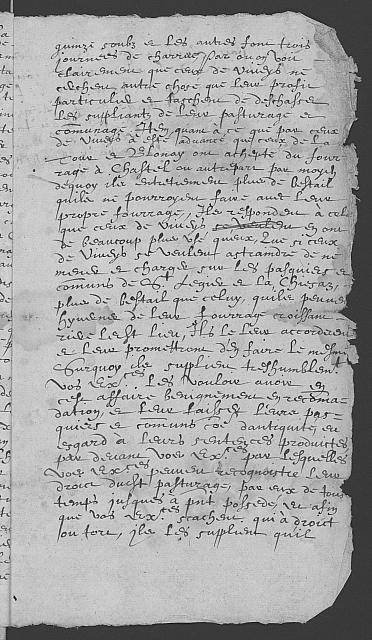 quinzi soubz et les autres font trois
journees de charrue, par ou on voit
clairement que ceux de Vinelz ne
cerchent autre chose que leur profit
particulier et taschent de deschasser
les suppliants de leur pasturage et
comunage. Item quant a ce que par ceux
de Vinelz a esté advancé que ceux de la
Tour et de Lonay ont achepté du four
rage a Chastel ou autrepart par moyen
dequoy ilz entretiennent plus de bestail
quilz ne pourroyent faire avec leur
propre fourrage, Ilz respondent a cela
que ceux de Vinelz en ont
de beaucoup plus usé queux, Que si ceux
de Vinelz se veulent astraindre de ne
mener et charger sur les pasquiers et
comuns de St. Legier et la Chiesaz,
plus de bestail que celuy quilz peuvent
hyverner de leur fourrage croissant
riere ledit lieu, Ilz le leur accorderont
et leur promettront den faire le mesme
Surquoy ilz supplient treshumblement
vos Ex.ces les vouloir avoir en
cest affaire benignement en recomman
dation, et leur laisser leurs pas-
quiers et comuns de dantiquité, eu
esgard a leurs sentences produictes
par devant voz Ex.ces par lesquelles
voz Ex.ces peuvent recognoistre leur
droit dudit pasturage, par eux de tout
temps jusques a pnt possedé, et afin
que vos Ex.ces scachent qui a droit
ou tort, ilz les supplient quil